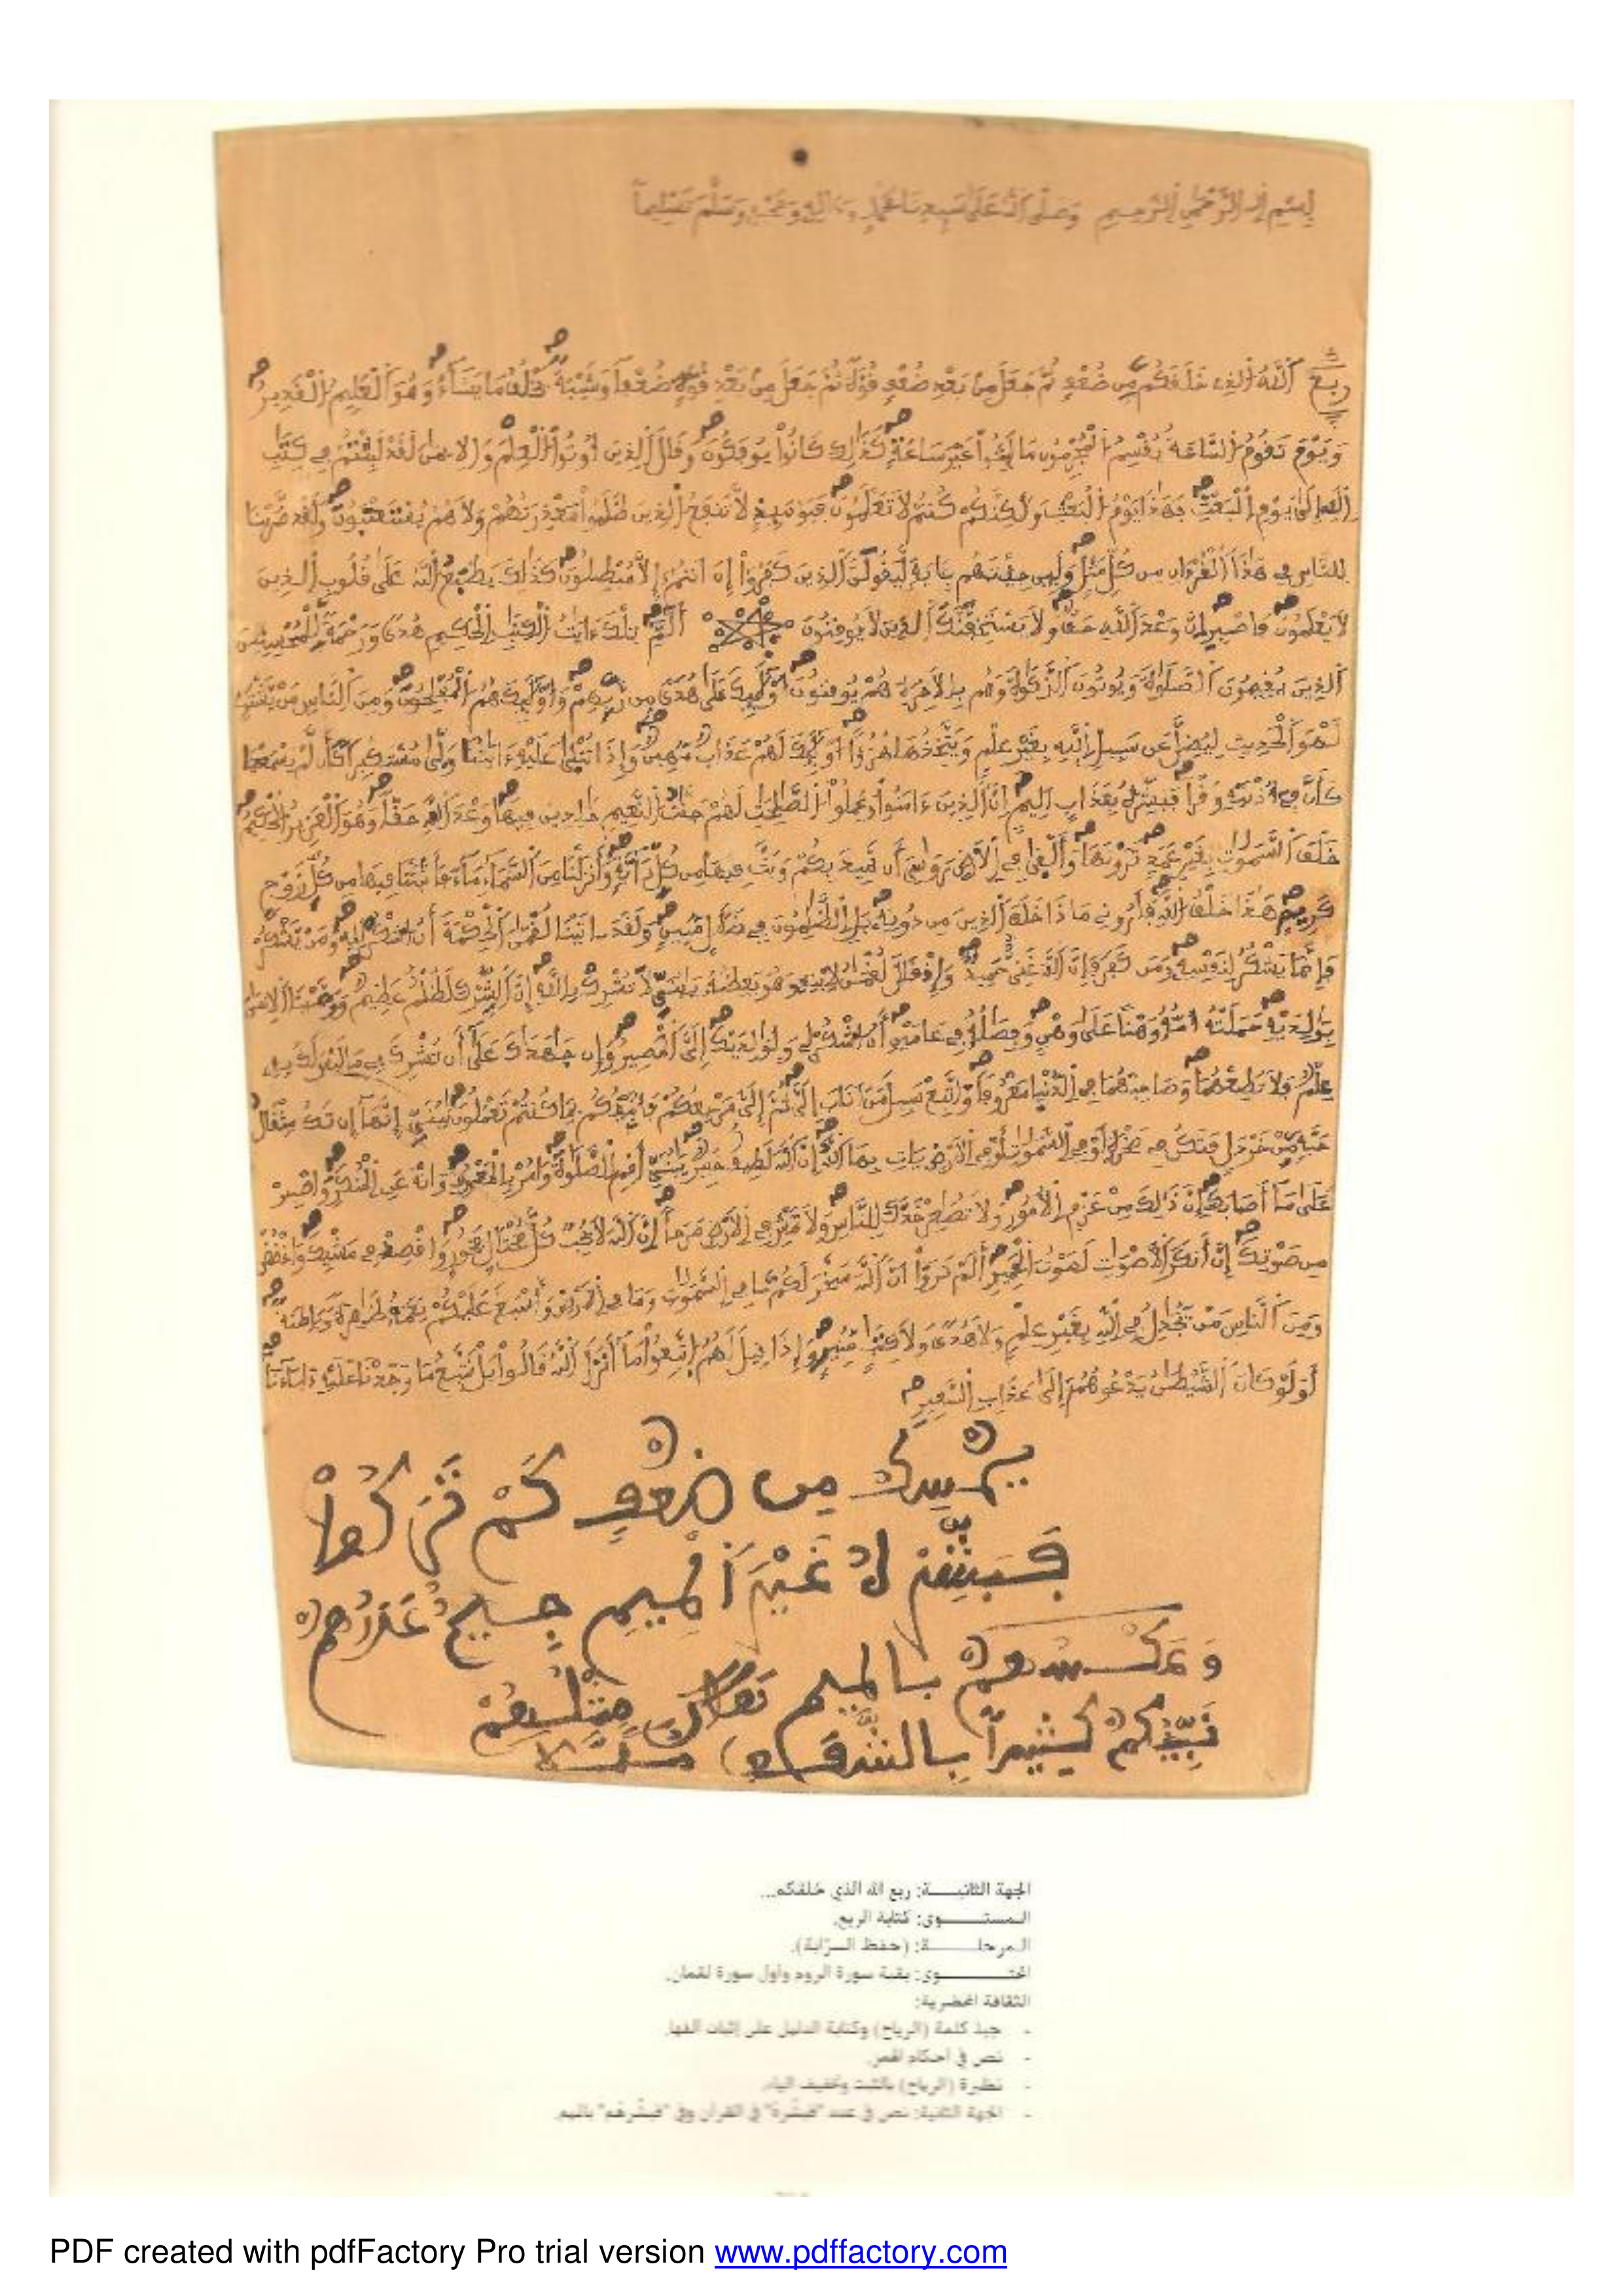 بِسْمِ اللهِ الرَّحْمٰنِ الرَّحِيمِ وَصَلَّى اللهُ عَلَى سَيِّدِنَا مُحَمَّدٍ وَءَالِهِ وَصَحْبِهِ وَسَلَّمَ تَسْلِيماً
ربع اَللَّهُ الذِي خَلَقَكُم مِّن ضُعْفٍ ثُمَّ جَعَلَ مِنۢ بَعْدِ ضُعْفٍ قُوَّةً ثُمَّ جَعَلَ مِنۢ بَعْدِ قُوَّةٍ ضُعْفاً وَشَيْبَةً يَخْلُقُ مَا يَشَآءُ وَهُوَ الْعَلِيمُ الْقَدِيرُ
وَيَوْمَ تَقُومُ السَّاعَةُ يُقْسِمُ الْمُجْرِمُونَ مَا لَبِثُواْ غَيْرَ سَاعَةٍ كَذَٰلِكَ كَانُواْ يُوفَكُونَ وَقَالَ الذِينَ أُوتُواْ الْعِلْمَ وَالِايمَٰنَ لَقَدْ لَبِثْتُمْ فِي كِتَٰبِ
اِللَّهِ إِلَىٰ يَوْمِ الْبَعْثِ فَهَٰذَا يَوْمُ الْبَعْثِ وَلَٰكِنَّكُمْ كُنتُمْ لَا تَعْلَمُونَ فَيَوْمَئِذٍ لَّا تَنفَعُ الذِينَ ظَلَمُواْ مَعْذِرَتُهُمْ وَلَا هُمْ يُسْتَعْتَبُونَ وَلَقَدْ ضَرَبْنَا
لِلنَّاسِ فِي هَٰذَا الْقُرْءَانِ مِن كُلِّ مَثَلٍ وَلَئِن جِئْتَهُم بِـَٔايَةٍ لَّيَقُولَنَّ الذِينَ كَفَرُواْ إِنَ اَنتُمُ إِلَّا مُبْطِلُونَ كَذَٰلِكَ يَطْبَعُ اللَّهُ عَلَىٰ قُلُوبِ الذِينَ
لَا يَعْلَمُونَ فَاصْبِرِ اِنَّ وَعْدَ اللَّهِ حَقٌّ وَلَا يَسْتَخِفَّنَّكَ الذِينَ لَا يُوقِنُونَ أَلَٓمِّٓ تِلْكَ ءَايَٰتُ الْكِتَٰبِ الْحَكِيمِ هُدىً وَرَحْمَةً لِّلْمُحْسِنِينَ
اَلذِينَ يُقِيمُونَ الصَّلَوٰةَ وَيُوتُونَ الزَّكَوٰةَ وَهُم بِالَاخِرَةِ هُمْ يُوقِنُونَ أُوْلَٰئِكَ عَلَىٰ هُدىً مِّن رَّبِّهِمْ وَأُوْلَٰئِكَ هُمُ الْمُفْلِحُونَ وَمِنَ النَّاسِ مَنْ يَّشْتَرِي
لَهْوَ الْحَدِيثِ لِيُضِلَّ عَن سَبِيلِ اِللَّهِ بِغَيْرِ عِلْمٍ وَيَتَّخِذُهَا هُزُؤاً اُوْلَٰئِكَ لَهُمْ عَذَابٌ مُّهِينٌ وَإِذَا تُتْلَىٰ عَلَيْهِ ءَايَٰتُنَا وَلَّىٰ مُسْتَكْبِراً كَأَن لَّمْ يَسْمَعْهَا
كَأَنَّ فِي أُذْنَيْهِ وَقْراً فَبَشِّرْهُ بِعَذَابٍ اَلِيمٍ اِنَّ الذِينَ ءَامَنُواْ وَعَمِلُواْ الصَّٰلِحَٰتِ لَهُمْ جَنَّٰتُ النَّعِيمِ خَٰلِدِينَ فِيهَا وَعْدَ اللَّهِ حَقّاً وَهُوَ الْعَزِيزُ الْحَكِيمُ
خَلَقَ السَّمَٰوَٰتِ بِغَيْرِ عَمَدٍ تَرَوْنَهَا وَأَلْقَىٰ فِي الَارْضِ رَوَٰسِيَ أَن تَمِيدَ بِكُمْ وَبَثَّ فِيهَا مِن كُلِّ دَآبَّةٍ وَأَنزَلْنَا مِنَ السَّمَآءِ مَآءً فَأَنۢبَتْنَا فِيهَا مِن كُلِّ زَوْجٍ
كَرِيمٍ هَٰذَا خَلْقُ اللَّهِ فَأَرُونِي مَاذَا خَلَقَ الذِينَ مِن دُونِهِ بَلِ الظَّٰلِمُونَ فِي ضَلَٰلٍ مُّبِينٍ وَلَقَدَ ـاتَيْنَا لُقْمَٰنَ الْحِكْمَةَ أَنُ اشْكُرْ لِلهِ وَمَنْ يَّشْكُرْ
فَإِنَّمَا يَشْكُرُ لِنَفْسِهِ وَمَن كَفَرَ فَإِنَّ اللَّهَ غَنِيٌّ حَمِيدٌ وَإِذْ قَالَ لُقْمَٰنُ لِابْنِهِ وَهُوَ يَعِظُهُ يَٰبُنَيِّ لَا تُشْرِكْ بِاللَّهِ إِنَّ الشِّرْكَ لَظُلْمٌ عَظِيمٌ وَوَصَّيْنَا الِانسَٰنَ
بِوَٰلِدَيْهِ حَمَلَتْهُ أُمُّهُ وَهْناً عَلَىٰ وَهْنٍ وَفِصَٰلُهُ فِي عَامَيْنِ أَنُ اشْكُرْ لِي وَلِوَٰلِدَيْكَ إِلَيَّ الْمَصِيرُ وَإِن جَٰهَدَٰكَ عَلَىٰ أَن تُشْرِكَ بِي مَا لَيْسَ لَكَ بِهِ
عِلْمٌ فَلَا تُطِعْهُمَا وَصَاحِبْهُمَا فِي الدُّنْيَا مَعْرُوفاً وَاتَّبِعْ سَبِيلَ مَنَ اَنَابَ إِلَيَّ ثُمَّ إِلَيَّ مَرْجِعُكُمْ فَأُنَبِّئُكُم بِمَا كُنتُمْ تَعْمَلُونَ يَٰبُنَيِّ إِنَّهَا إِن تَكُ مِثْقَالُ
حَبَّةٍ مِّنْ خَرْدَلٍ فَتَكُن فِي صَخْرَةٍ اَوْ فِي السَّمَٰوَٰتِ أَوْ فِي الَارْضِ يَاتِ بِهَا اللَّهُ إِنَّ اللَّهَ لَطِيفٌ خَبِيرٌ يَٰبُنَيِّ أَقِمِ الصَّلَوٰةَ وَامُرْ بِالْمَعْرُوفِ وَانْهَ عَنِ الْمُنكَرِ وَاصْبِرْ
عَلَىٰ مَا أَصَابَكَ إِنَّ ذَٰلِكَ مِنْ عَزْمِ الُامُورِ وَلَا تُصَٰعِرْ خَدَّكَ لِلنَّاسِ وَلَا تَمْشِ فِي الَارْضِ مَرَحاً اِنَّ اللَّهَ لَا يُحِبُّ كُلَّ مُخْتَالٍ فَخُورٍ وَاقْصِدْ فِي مَشْيِكَ وَاغْضُضْ
مِن صَوْتِكَ إِنَّ أَنكَرَ الَاصْوَٰتِ لَصَوْتُ الْحَمِيرِ أَلَمْ تَرَوَاْ اَنَّ اللَّهَ سَخَّرَ لَكُم مَّا فِي السَّمَٰوَٰتِ وَمَا فِي الَارْضِ وَأَسْبَغَ عَلَيْكُمْ نِعَمَهُ ظَٰهِرَةً وَبَاطِنَةً
وَمِنَ النَّاسِ مَنْ يُّجَٰدِلُ فِي اللَّهِ بِغَيْرِ عِلْمٍ وَلَا هُدىً وَلَا كِتَٰبٍ مُّنِيرٍ وَإِذَا قِيلَ لَهُمُ اتَّبِعُواْ مَا أَنزَلَ اللَّهُ قَالُواْ بَلْ نَتَّبِعُ مَا وَجَدْنَا عَلَيْهِ ءَابَآءَنَا
أَوَلَوْ كَانَ الشَّيْطَٰنُ يَدْعُوهُمُ إِلَىٰ عَذَابِ السَّعِيرِ
من ضعف كم تركوا
فبشر لا غير الميم جيم
بالميم
كثيراً
الجهة الثانيـــة: ربع الله الذي خلقكم...
المستـــــوى: كتابة الربع.
المرحلـــــة: (حفظ السرّابة).
المحتـــــوى: بقية سورة الروم وأول سورة لقمان.
الثقافة المحضرية:
- جبذ كلمة (الرياح) وكتابة الدليل على إثبات ألفها.
- نص في أحكام الهمز.
- نظيرة (الرياح) بالثبت وتخفيف الياء.
- الجهة الثانية: نص في عدد "فبشره" في القرآن وفي "فبشرهم" بالميم.
PDF created with pdfFactory Pro trial version www.pdffactory.com